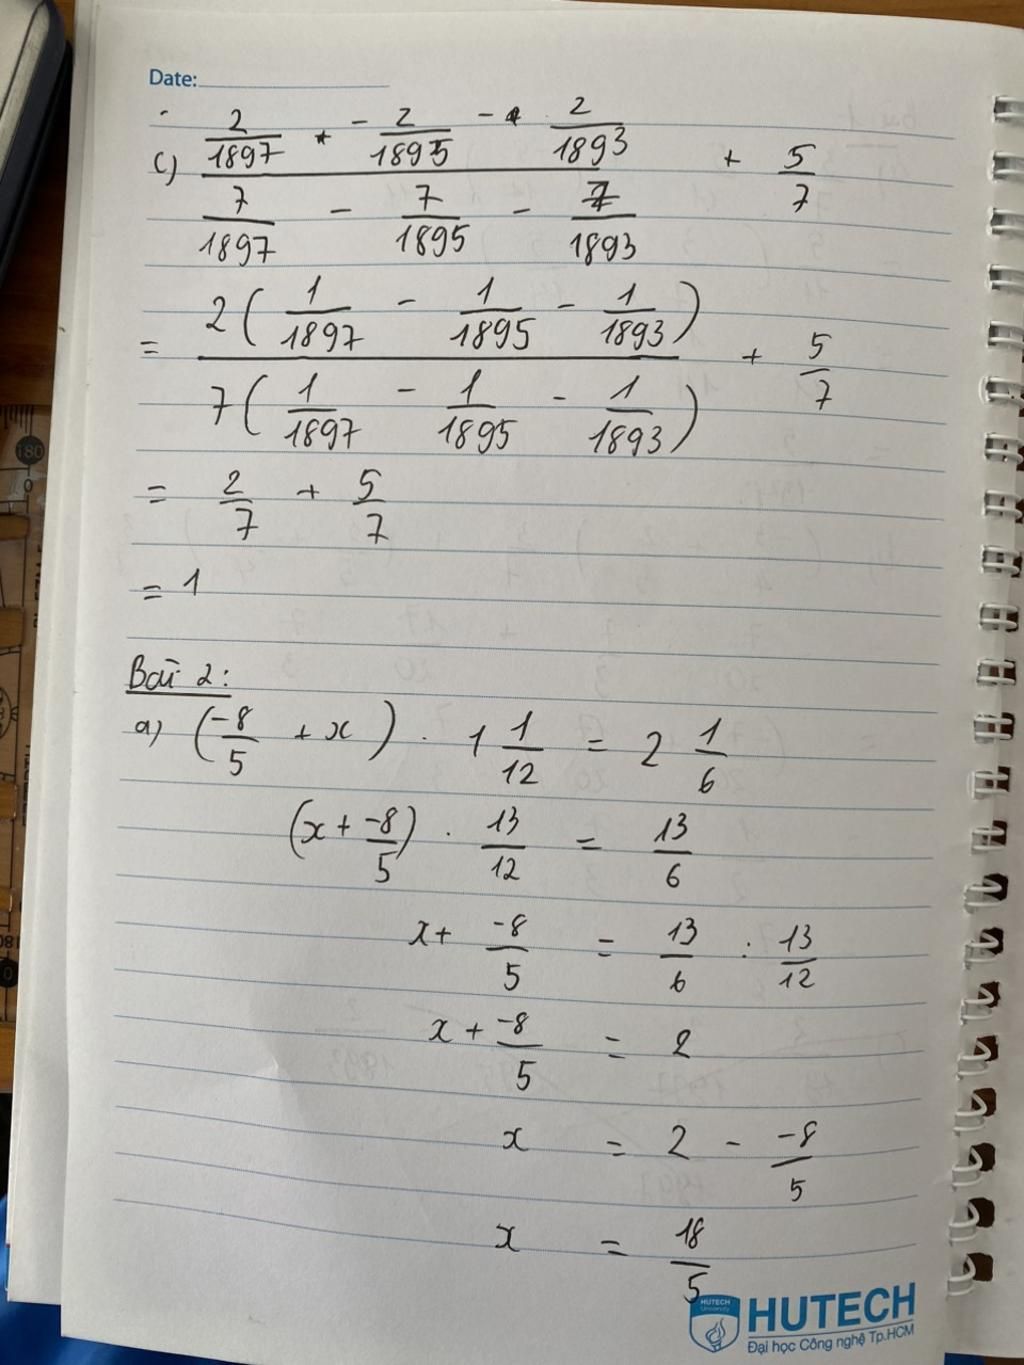 Date:
c) \frac{\frac{2}{1897} - \frac{2}{1895} - \frac{2}{1893}}{\frac{7}{1897} - \frac{7}{1895} - \frac{7}{1893}} + \frac{5}{7}
= \frac{2(\frac{1}{1897} - \frac{1}{1895} - \frac{1}{1893})}{7(\frac{1}{1897} - \frac{1}{1895} - \frac{1}{1893})} + \frac{5}{7}
= \frac{2}{7} + \frac{5}{7}
= 1
Bài 2:
a) (\frac{-8}{5} + x) . 1 \frac{1}{12} = 2 \frac{1}{6}
(x + \frac{-8}{5}) . \frac{13}{12} = \frac{13}{6}
x + \frac{-8}{5} = \frac{13}{6} : \frac{13}{12}
x + \frac{-8}{5} = 2
x = 2 - \frac{-8}{5}
x = \frac{18}{5}
HUTECH
University
HUTECH
Đại học Công nghệ Tp.HCM